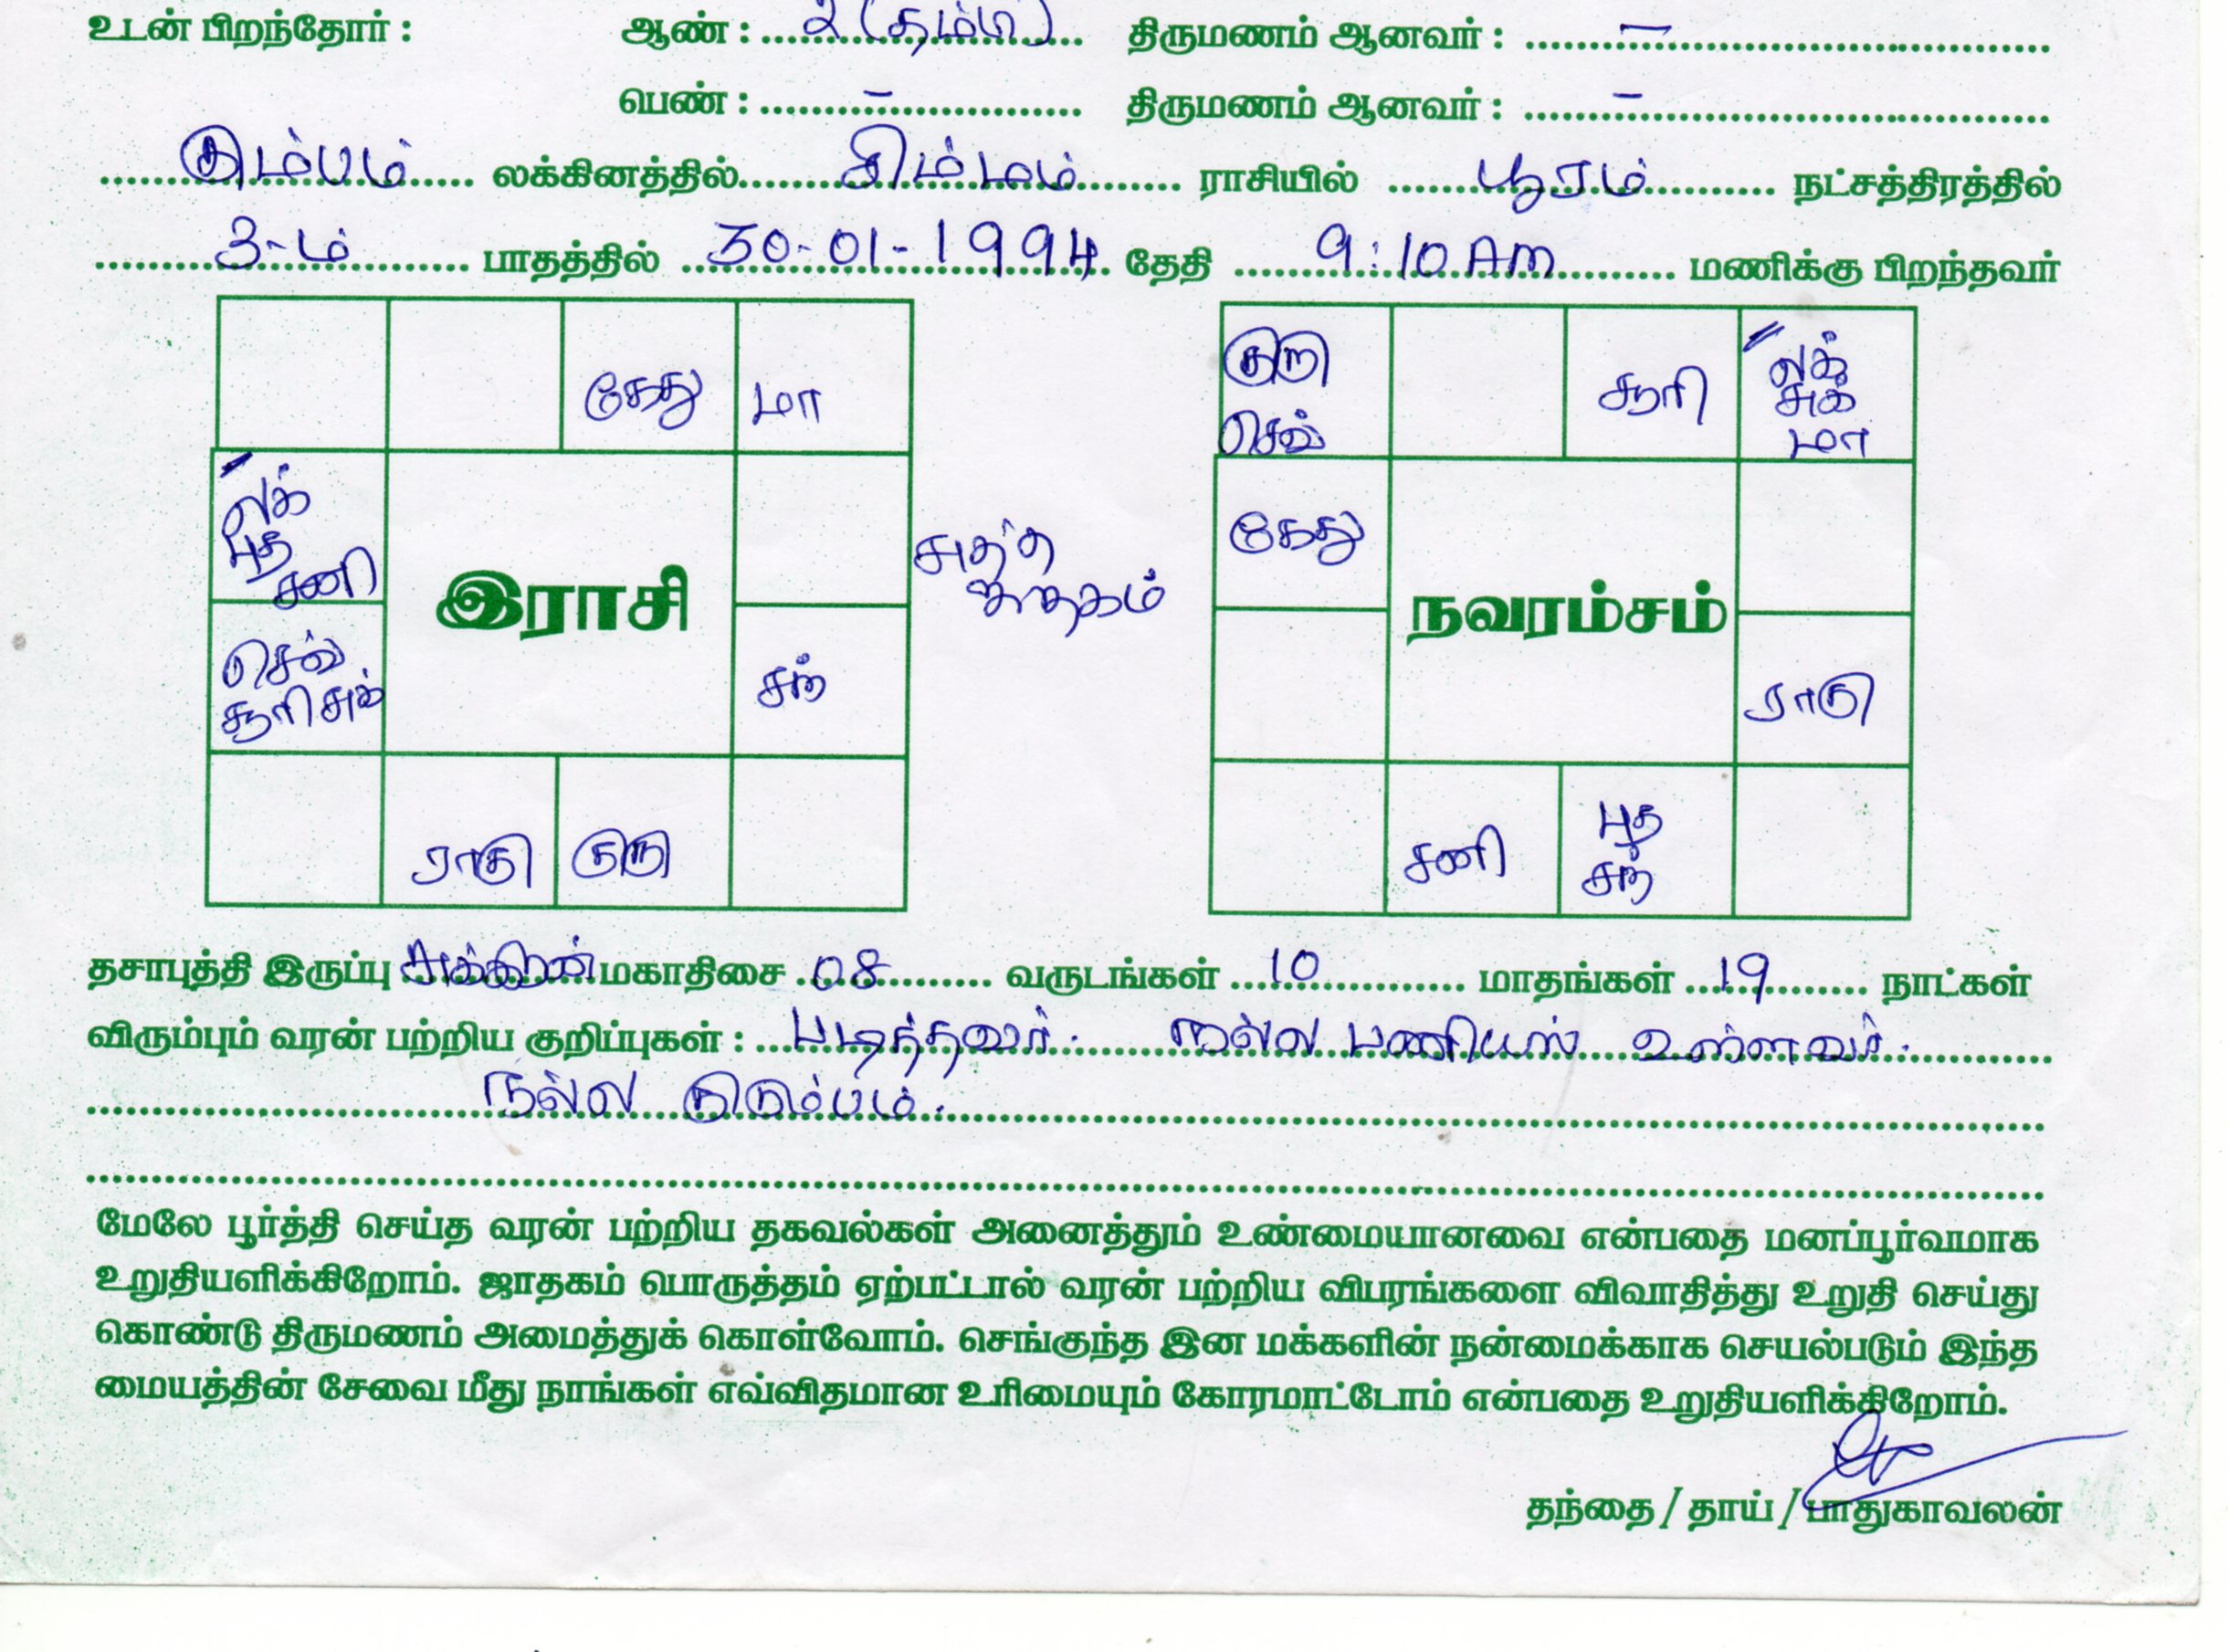 உடன் பிறந்தோர் : ஆண் : 2 (தம்பி) திருமணம் ஆனவர் : –
பெண் : – திருமணம் ஆனவர் : –
கும்பம் லக்கினத்தில் சிம்மம் ராசியில் பூரம் நட்சத்திரத்தில்
3-ம் பாதத்தில் 30-01-1994 தேதி 9:10 AM மணிக்கு பிறந்தவர்
கேது மா
லக்
புத
சனி
இராசி
செவ்
சூரி சுக்
சந்
ராகு குரு
சுத்த
ஜாதகம்
குரு
செவ்
சூரி
லக்
சுக்
மா
கேது
நவரம்சம்
ராகு
சனி
புத
சந்
தசாபுத்தி இருப்பு சுக்கிரன் மகாதிசை 08 வருடங்கள் 10 மாதங்கள் 19 நாட்கள்
விரும்பும் வரன் பற்றிய குறிப்புகள் : படித்தவர். நல்ல பணியில் உள்ளவர்.
நல்ல குடும்பம்.
மேலே பூர்த்தி செய்த வரன் பற்றிய தகவல்கள் அனைத்தும் உண்மையானவை என்பதை மனப்பூர்வமாக
உறுதியளிக்கிறோம். ஜாதகம் பொருத்தம் ஏற்பட்டால் வரன் பற்றிய விபரங்களை விவாதித்து உறுதி செய்து
கொண்டு திருமணம் அமைத்துக் கொள்வோம். செங்குந்த இன மக்களின் நன்மைக்காக செயல்படும் இந்த
மையத்தின் சேவை மீது நாங்கள் எவ்விதமான உரிமையும் கோரமாட்டோம் என்பதை உறுதியளிக்கிறோம்.
தந்தை / தாய் / பாதுகாவலன்